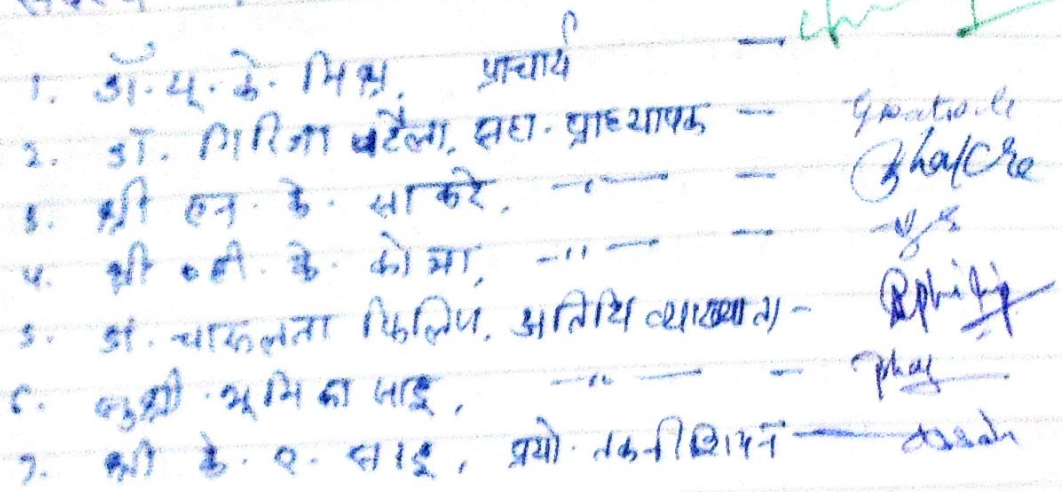 1. डॉ. यू. के. मिश्र, प्राचार्य —
2. डॉ. गिरिजा पटेला, सहा. प्राध्यापक —
3. श्री एन. के. साकरे, —"— —
4. श्री व्ही. के. कोमा, —"— —
5. डॉ. चारूलता फिलिप, अतिथि व्याख्याता -
6. सुश्री भूमिका साहू, —"— —
7. श्री के. ए. साहू, प्रयो. तकनीशियन —